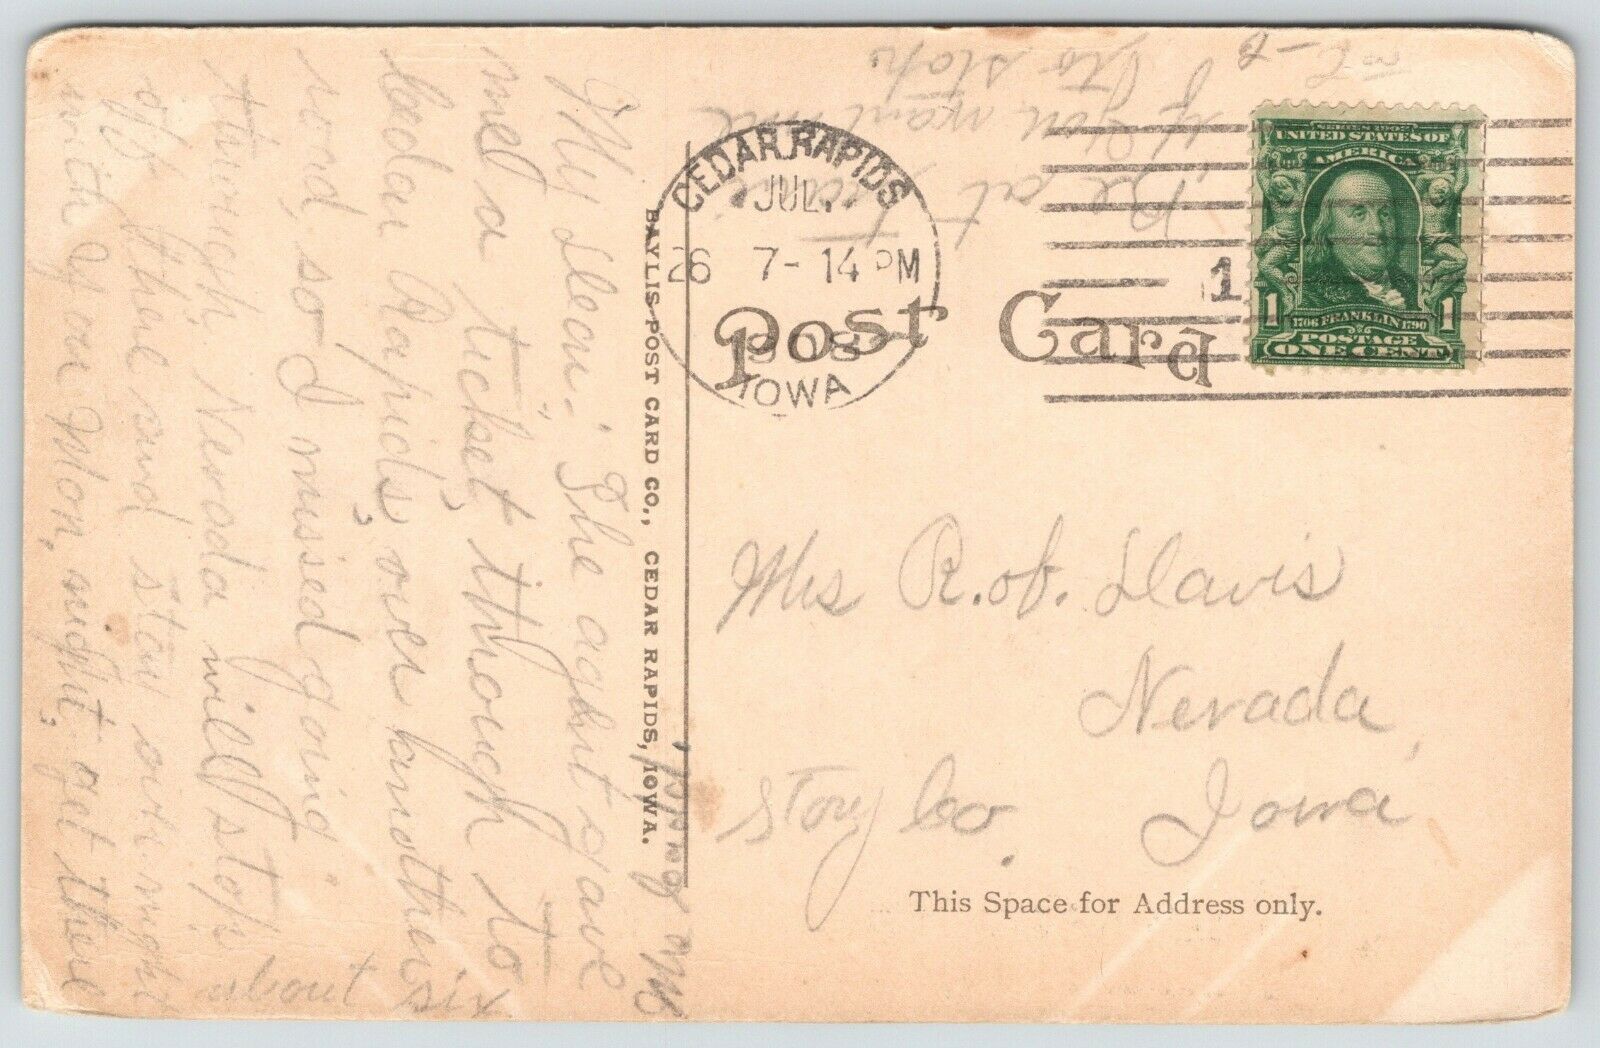 My Dear: The aght gave
me a ticket though to
Cedar Rapids over another
road, so I missed going
through Nevada will stop
off there and stay over night
with you Mon, night, get there
about six
BAYLIS POST CARD CO., CEDAR RAPIDS, IOWA.
Be at
if you want me
to stop
CEDAR RAPIDS
JUL.
26 7-14 PM
1908
IOWA
1
Post Card
SERIES 1902
UNITED STATES OF
AMERICA
1 1
1706 FRANKLIN 1790
POSTAGE
ONE CENT
Mrs R.of. Davis
Nevada,
Story Co. Iowa
This Space for Address only.